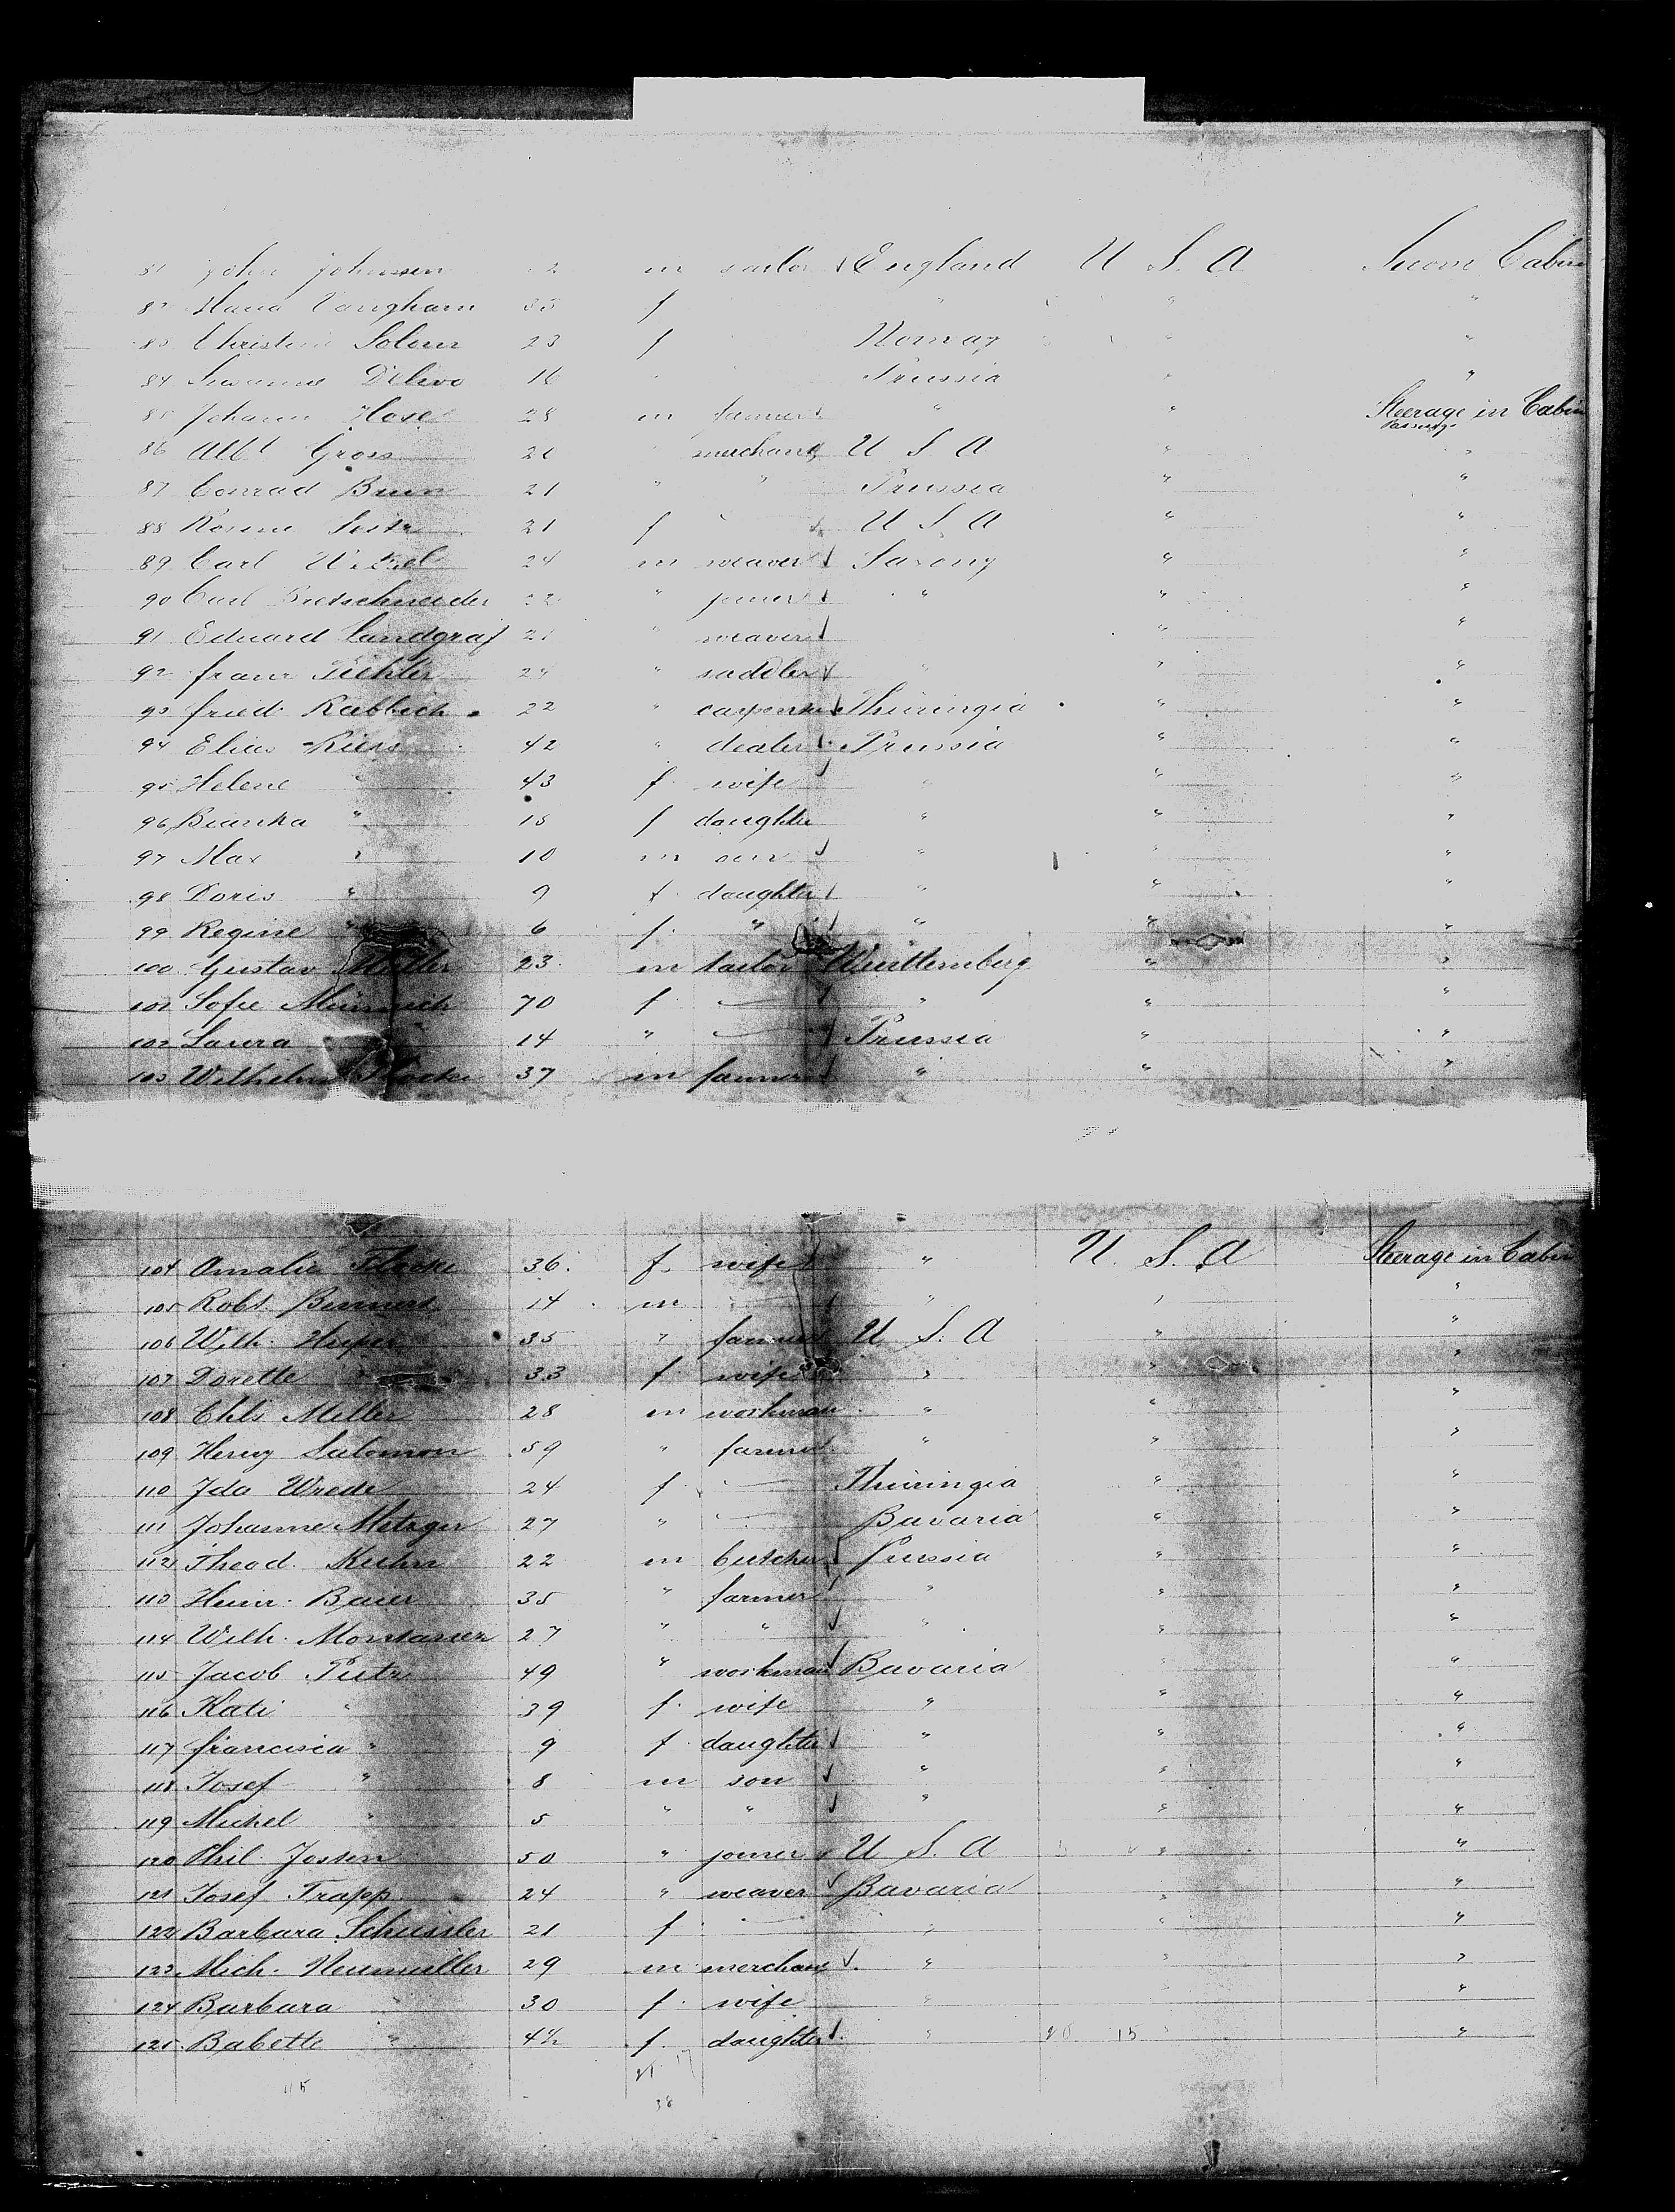 81 John Johnson m sailor England U S A Secon Cabin
82 Maria Vaugham 35 f " " "
83 Christine 23 f Norway " "
84 Susanne 16 " Prussia " "
85 Johann Hose 28 m farmer " " Steerage in Cabin
Passeng.
86 Albt Gross 21 merchant U S A "
87 Conrad Brun 21 " " Prussia " "
88 Rosine 21 f U S A " "
89 Carl Wetzel 24 m weaver Saxony " "
90 Carl Bretschneider 22 " joiner " " "
91 Eduard Landgraf 21 " weaver " "
92 Franz 24 " saddler " " "
93 fried. Rabbich 22 " carpenter Thüringia " "
94 Elias Riess 42 " dealer Prussia " "
95 Helene " 43 f wife " " "
96 Bianka " 15 f daughter " " "
97 Max " 10 m son " " "
98 Doris " 9 f daughter " " "
99 Regine " 6 f. " " " "
100 Gustav Müller 23 m tailor Württemberg " "
101 Sofie 70 f. — " " "
102 Laura 14 " — Prussia " "
103 Wilhelm 37 m farmer " " "
104 Amalie 36. f. wife " U. S. A Steerage in Cabin
105 Robt. 14 m — " " "
106 Wilh. 35 " farmer U S. A " "
107 Dorette " 33 f. wife " " "
108 Chls Miller 28 m workman " " "
109 Henry Salomon 59 " farmer " " "
110 Ida Wrede 24 f. — Thüringia " "
111 Johanne Metzger 27 " — Bavaria " "
112 Theod. Kuhn 22 m butcher Prussia " "
113 Heinr. Baier 35 " farmer " " "
114 Wilh. 27 " " " " "
115 Jacob 49 " workman Bavaria " "
116 Kati " 39 f. wife " " "
117 francisca " 9 f. daughter " " "
118 Josef " 8 m son " " "
119 Michel " 5 " " " " "
120 Phil. Josten 50 " joiner U S. A " "
121 Josef Trapp 24 " weaver Bavaria " "
122 Barbara Schussler 21 f — " " "
123 Mich. Neumüller 29 m merchant " " "
124 Barbara " 30 f. wife " " "
125 Babette " 4½ f. daughter " 20 15 " "
21 17
115
38